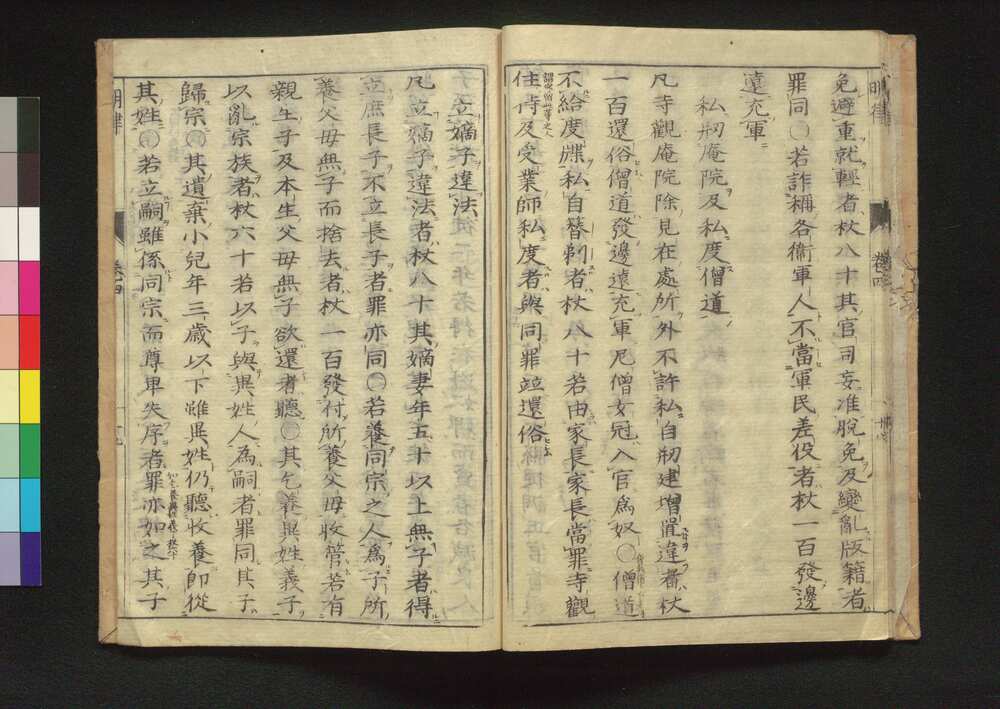 明律
卷四
免避重就輕者杖八十其官司妄准脫免及變亂版籍者
罪同〇若詐稱各衞軍人不當軍民差役者杖一百發邊
遠充軍
私刱庵院及私度僧道
凡寺觀庵院除見在處所外不許私自刱建增置違者杖
一百還俗僧道發邊遠充軍尼僧女冠入官爲奴〇僧道
不給度牒私自替剃者杖八十若由家長家長當罪寺觀
住侍及受業師私度者與同罪竝還俗
立嫡子違法
凡立嫡子違法者杖八十其嫡妻年五十以上無子者得
立庶長子不立長子者罪亦同〇若養同宗之人爲子所
養父母無子而捨去者杖一百發付所養父母收管若有
親生子及本生父母無子欲還者聽〇其乞養異姓義子
以亂宗族者杖六十若以子與異姓人為嗣者罪同其子
歸宗〇其遺棄小兒年三歲以下雖異姓仍聽收養卽從
其姓〇若立嗣雖係同宗而尊卑失序者罪亦如之其子
明律
卷四